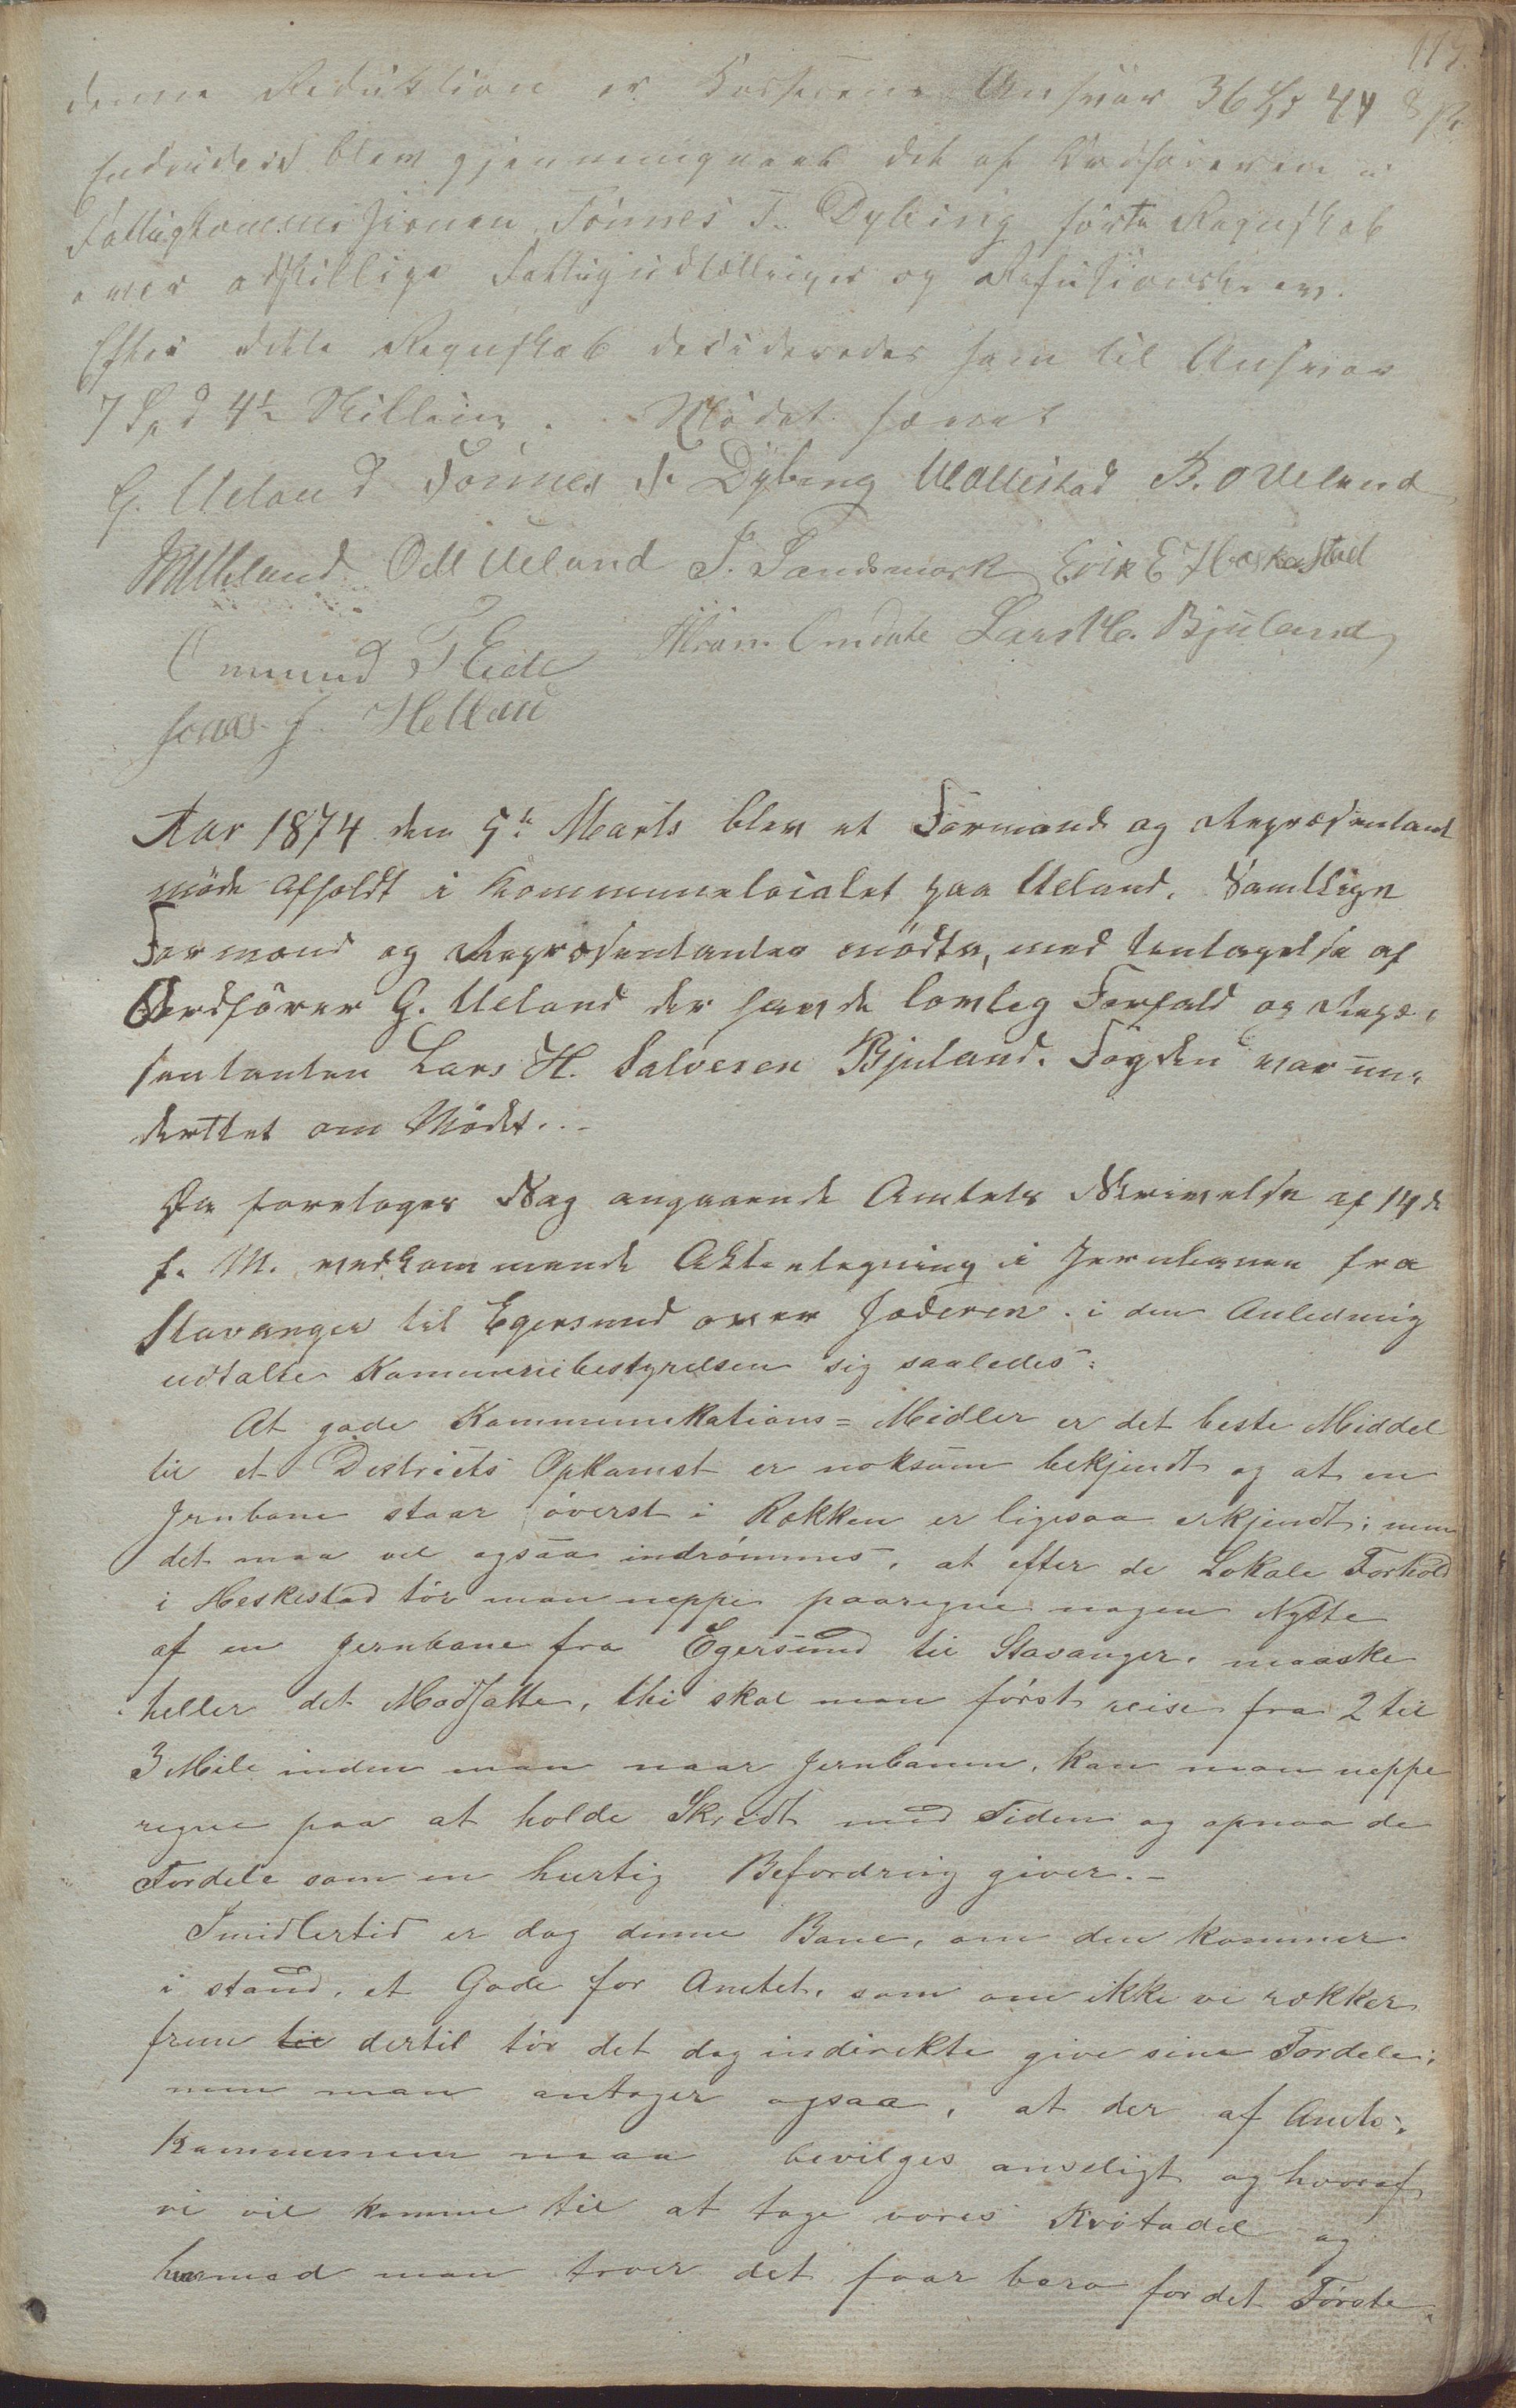 119.
denne Reduktion er Kasserens Ansvar 36 Spd 4 8
Endvidere blev gjennemgaaet det af Ordføreren i
Fattigkommissionen Tønnes T. Dybing førte Regnskab
over adskillige Fattigudtællinger og Refusionskrav.
Efter dette Regnskab desideredes som til Ansvar
7 Spd 4½ Skilling. Mødet hævet
G. Ueland Tønnes T. Dybing B. O Ueland
Odd Ueland T. Tandsmark Erik E Heskestad
Omund T Eide Omdal Lars H. Bjuland
Jonas J. Helland
Aar 1874 den 5te Marts blev et Formand og Repræsentant
møde afholdt i Kommunelocalet paa Ueland. Samtlige
Formænd og Repræsentanter mødte, med Untagelse af
Ordfører G. Ueland der havde lovleg Forfald og Repæ-
sentanten Lars H. Salvesen Bjuland. Fogden var un-
derettet om Mødet. -
Da foretoges Sag angaaende Amtets Skrivelse af 14de
f. M. vedkommende Aktietegning i Jernbanen fra
Stavanger til Egersund over Jæderen. i den Anledning
udtalte Kommunebestyrelsen sig saaledes:
At gode Kommunikations=Midler er det beste Middel
til et Districts Opkomst er noksom bekjendt og at en
Jrnbane staar øverst i Rækken er ligesaa erkjendt; men
det maa vel ogsaa indrømmes, at efter de Lokale Forhold
i Heskestad tør man neppe paaregne nogen Nytte
af en Jernbane fra Egersund til Stavanger, maaske
heller det Modsatte, thi skal man først reise fra 2 til
3 Mile inden man naar Jernbanen, kan man neppe
regne paa at holde Skridt med Tiden og opnaa de
Fordele som en hurtig Befordring giver. -
Imidlertid er dog denne Bane, om den kommer
i stand, et Gode for Amtet, som om ikke vi rækker
frem til dertil tør det dog indirekte give sine Fordele;
men man antager ogsaa, at der af Amts-
Kommunen maa bevilges anseligt og hvoraf
vi vil komme til at tage vores Kvotadel og
hermed man troer det faar bero for det Første,